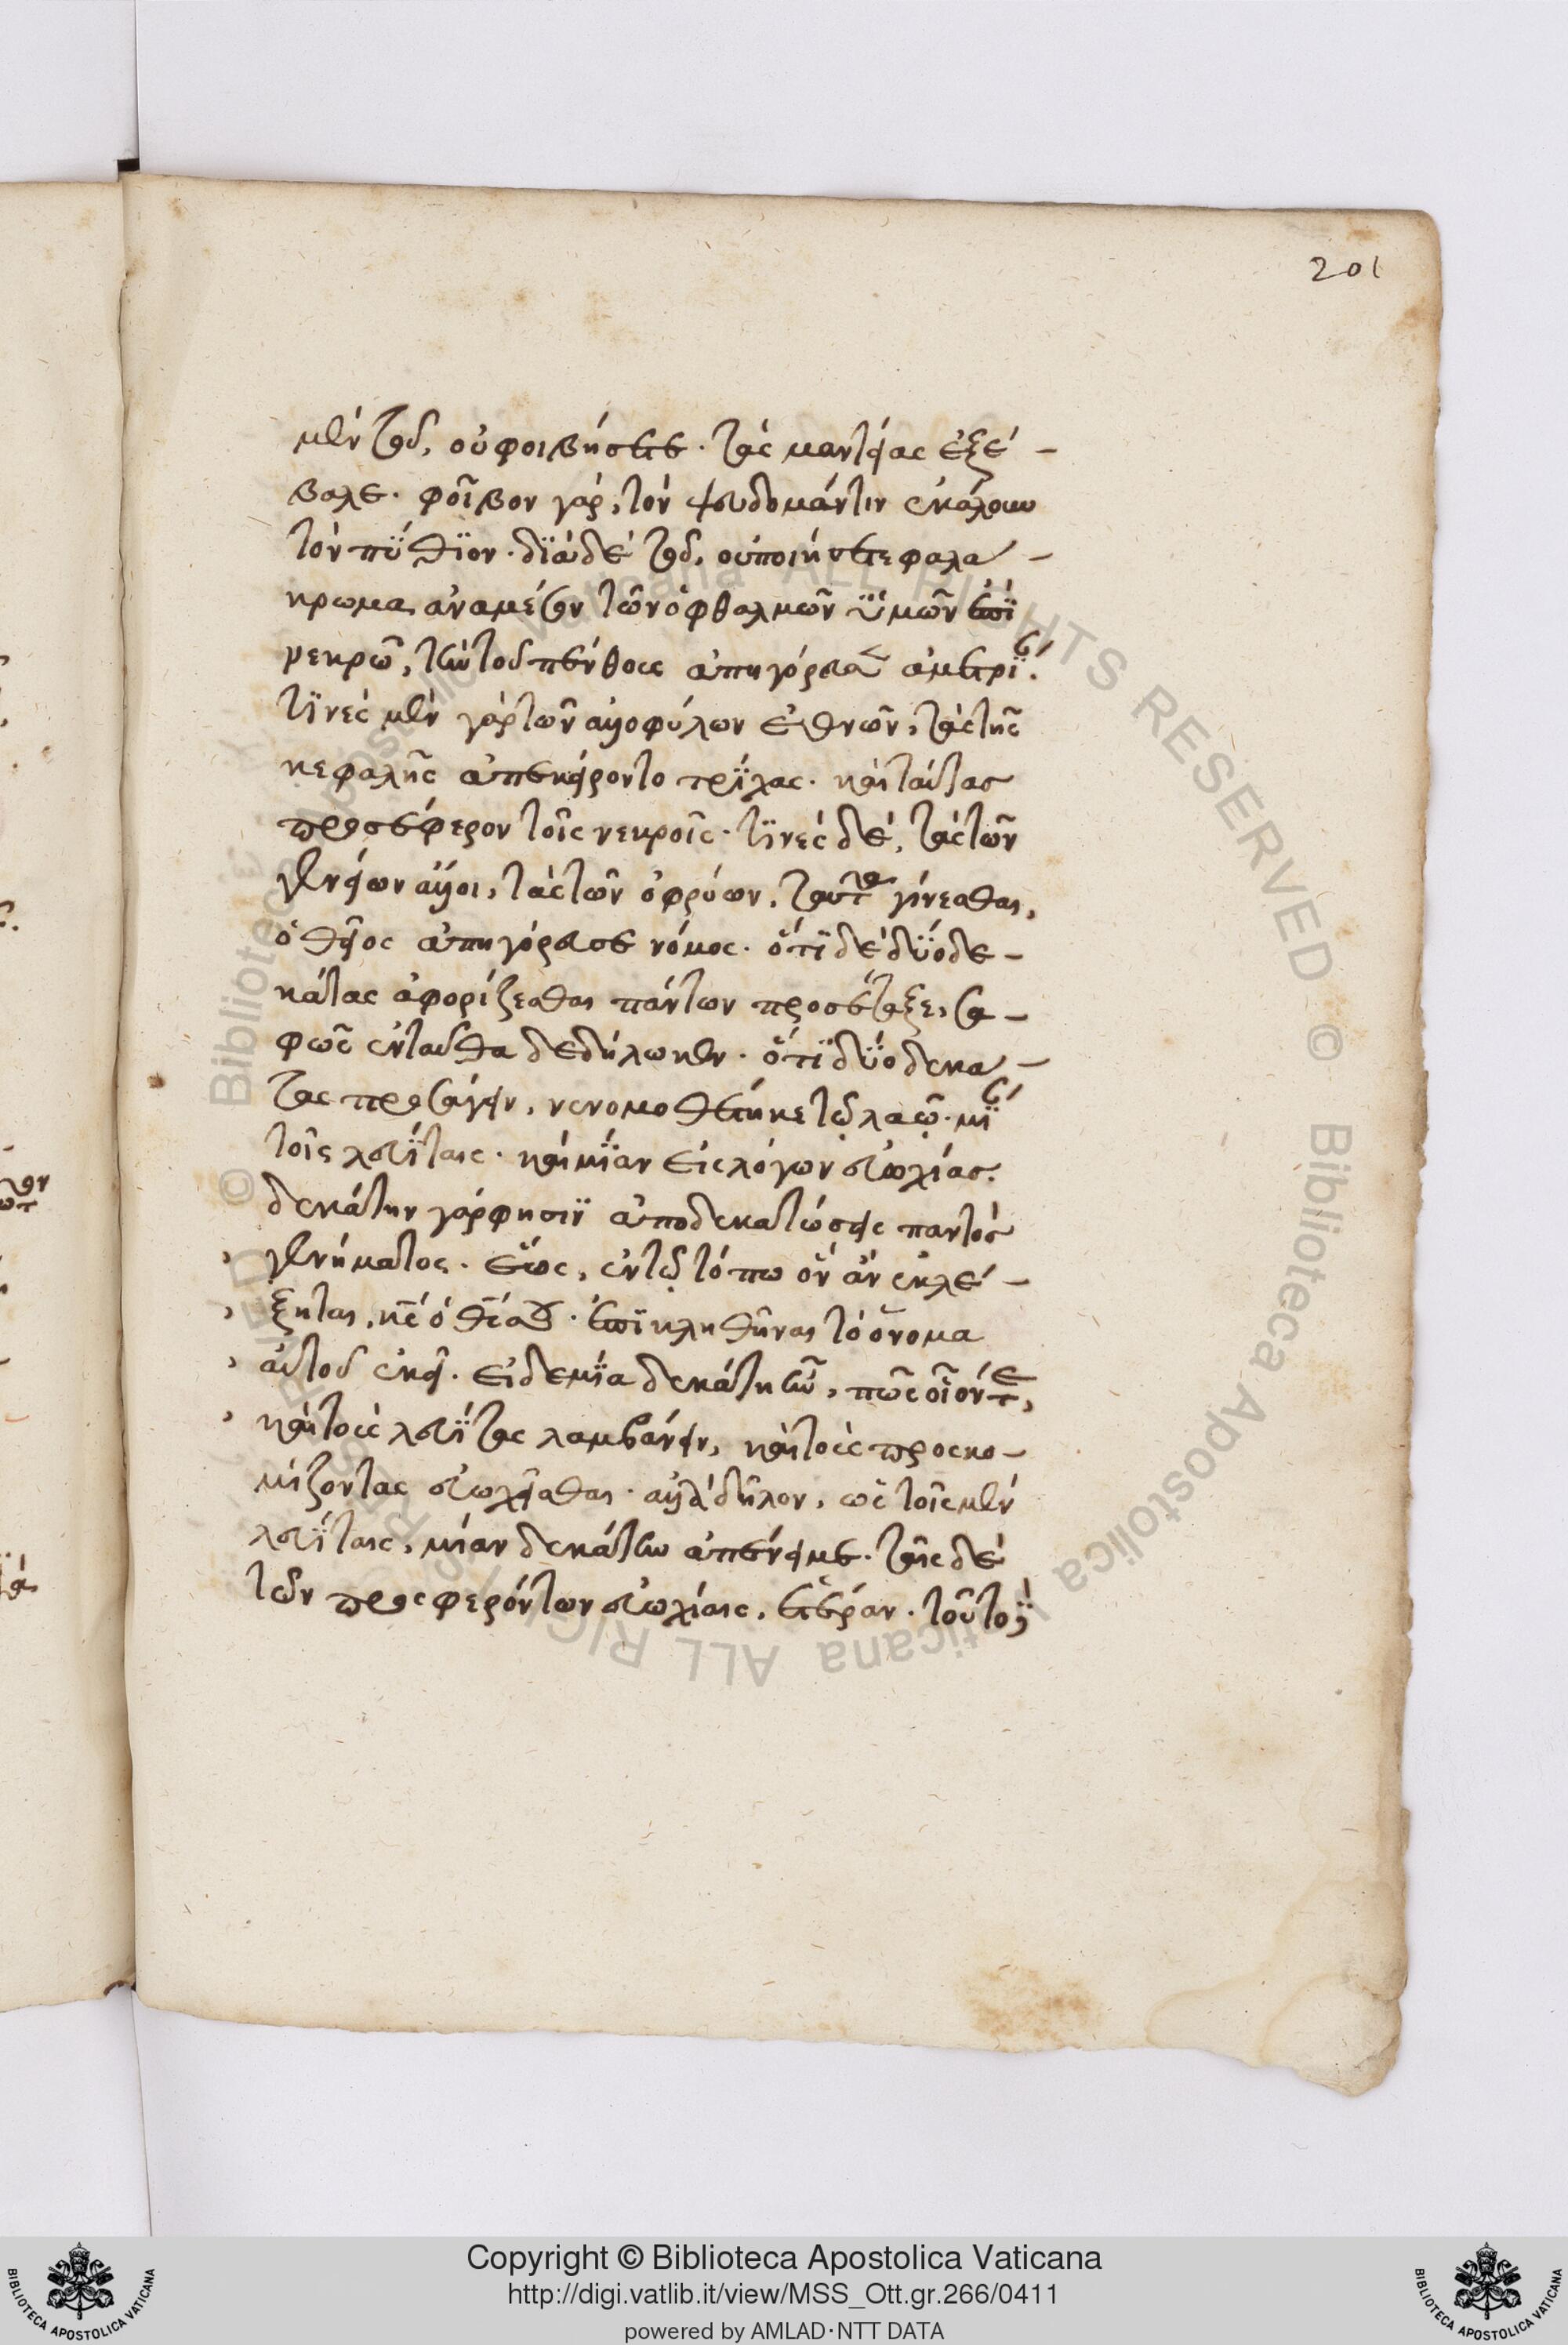 201
μὲν τοῦ, οὐ φοιβήσετε. τὰς μαντείας ἐξέ-
βαλε. φοῖβον γάρ, τὸν ψευδομάντιν ἐκάλουν
τὸν πΰθϊον. δϊὰ δὲ τοῦ, οὐ ποιήσετε φαλα-
κρωμα ἀναμέσον τῶν ὀφθαλμῶν ὑμῶν ἐπὶ
νεκρῶ, τὴν τοῦ πένθους ἀπηγόρευσεν ἀμετρίαν.
τϊνὲς μὲν γὰρ τῶν ἀλλοφύλων ἐθνῶν, τὰς τῆς
κεφαλῆς ἀπεκείροντο τρΐχας. καὶ ταύτας
προσέφερον τοῖς νεκροῖς. τϊνὲς δὲ, τὰς τῶν
γενείων ἄλλοι, τὰς τῶν ὀφρύων. ταῦτα γίνεσθαι,
ὁ θεῖος ἀπηγόρευσε νόμος. ὅτϊ δὲ δΰο δε-
κάτας ἀφορίζεσθαι πάντων προσέταξε, σα-
φῶς ἐνταῦθα δεδήλωκεν. ὅτϊ δΰο δεκα-
τας προσάγειν, νενομοθέτηκε τῷ λαῷ. μίαν
τοῖς λευΐταις. καὶ μΐαν εἰς λόγων εὐωχίας.
δεκάτην γάρ φησιϊ ἀποδεκατώσεις παντὸς
γενήματος. ἕως, ἐν τῷ τόπω ὃν ἂν ἐκλέ-
ξηται, κς ὁ θς σου. ἐπϊκληθῆναι τὸ ὄνομα
αὐτοῦ ἐκεῖ. εἰ δὲ μΐα δεκάτη ἦν, πῶς οἷόν τε,
καὶ τοὺς λευΐτας λαμβάνειν, καὶ τοὺς προσκο-
μίζοντας εὐωχεῖσθαι. ἀλλὰ δῆλον, ὡς τοῖς μὲν
λευΐταις, μίαν δεκάτην ἀπένειμε. ταῖς δὲ
τῶν προσφερόντων εὐωχίαις, ἑτέραν. τοῦτο
Copyright © Biblioteca Apostolica Vaticana
http://digi.vatlib.it/view/MSS_Ott.gr.266/0411
powered by AMLAD·NTT DATA